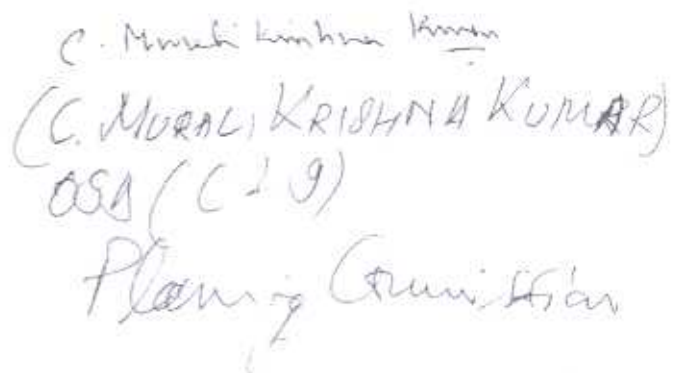 C. Murali Krishna Kumar
(C. MURALI KRISHNA KUMAR)
OSD (C & I)
Planning Commission